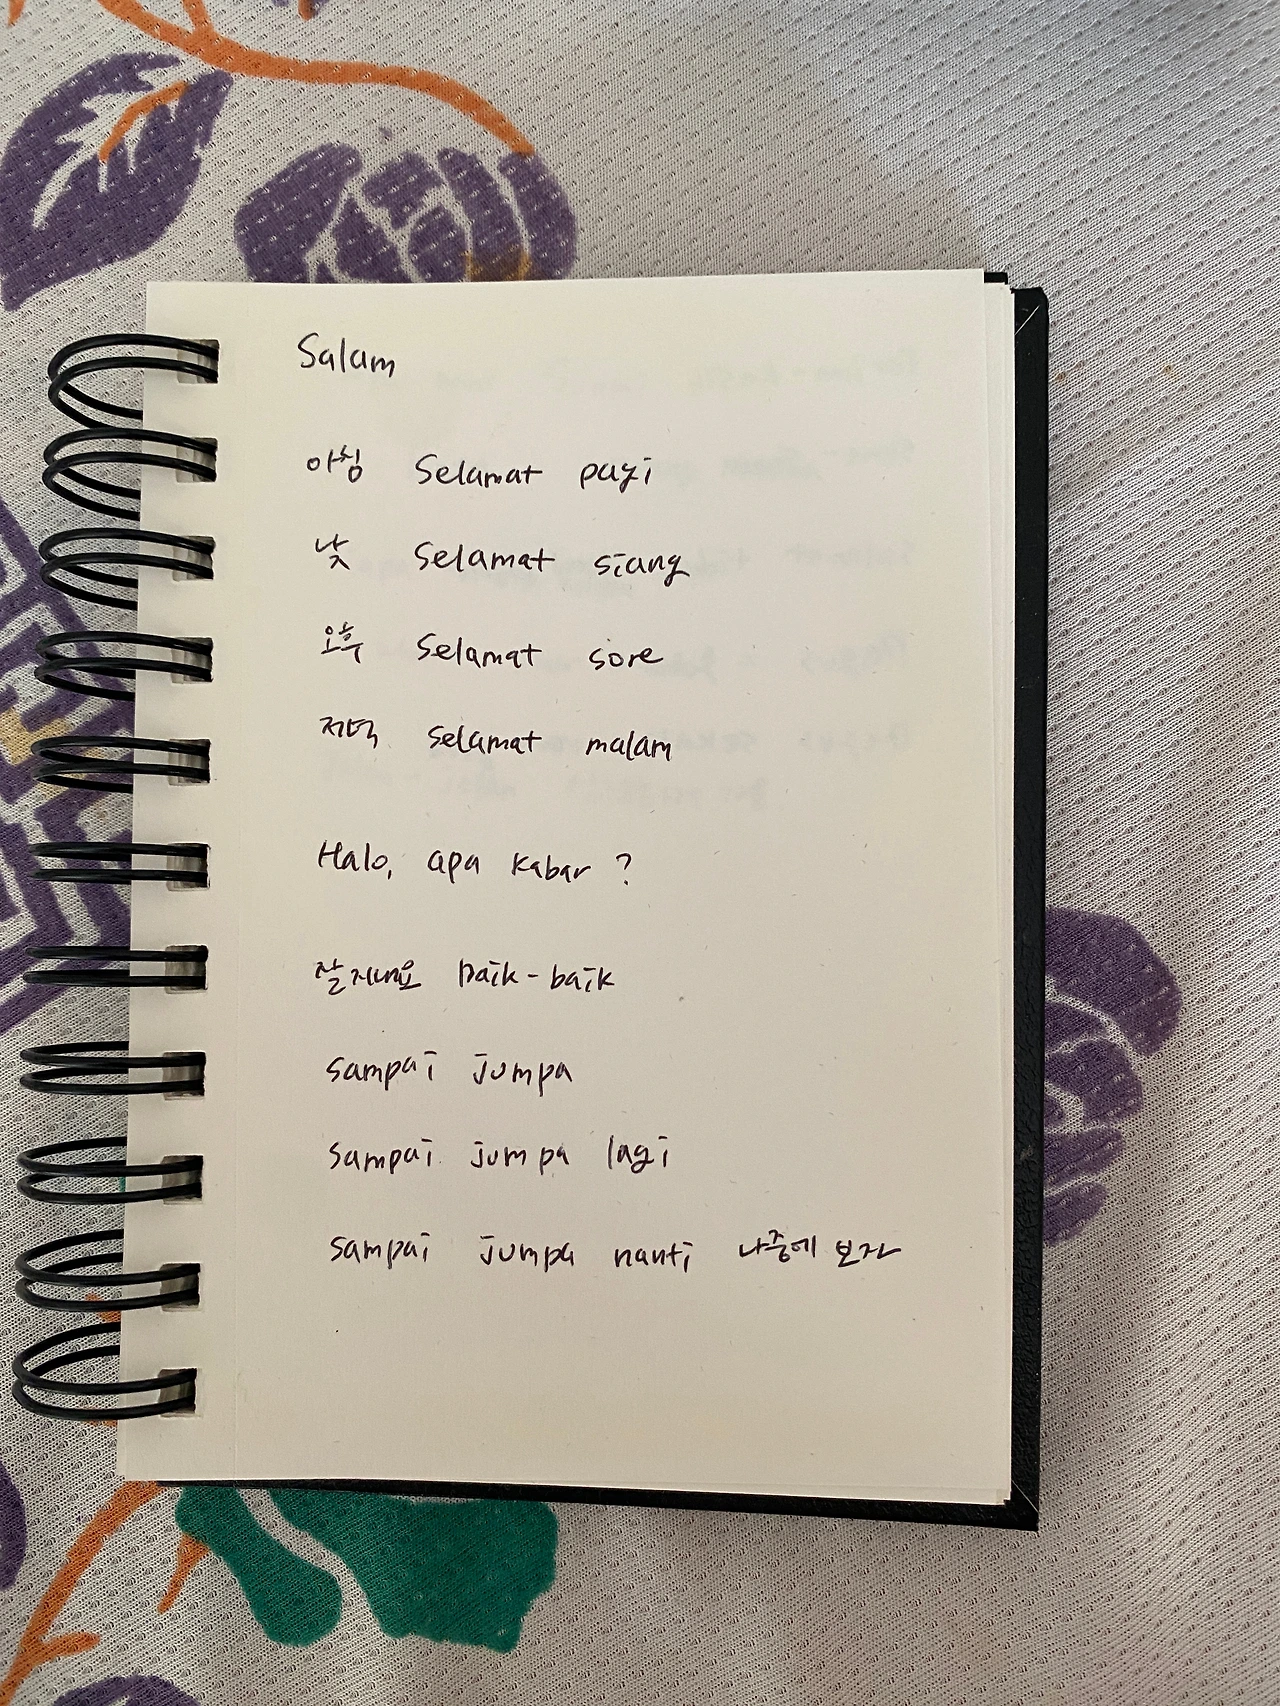 Salam
아침 Selamat pagi
낮 Selamat siang
오후 Selamat sore
저녁 Selamat malam
Halo, apa kabar ?
잘지내요 baik - baik
sampai jumpa
sampai jumpa lagi
sampai jumpa nanti 나중에 보자